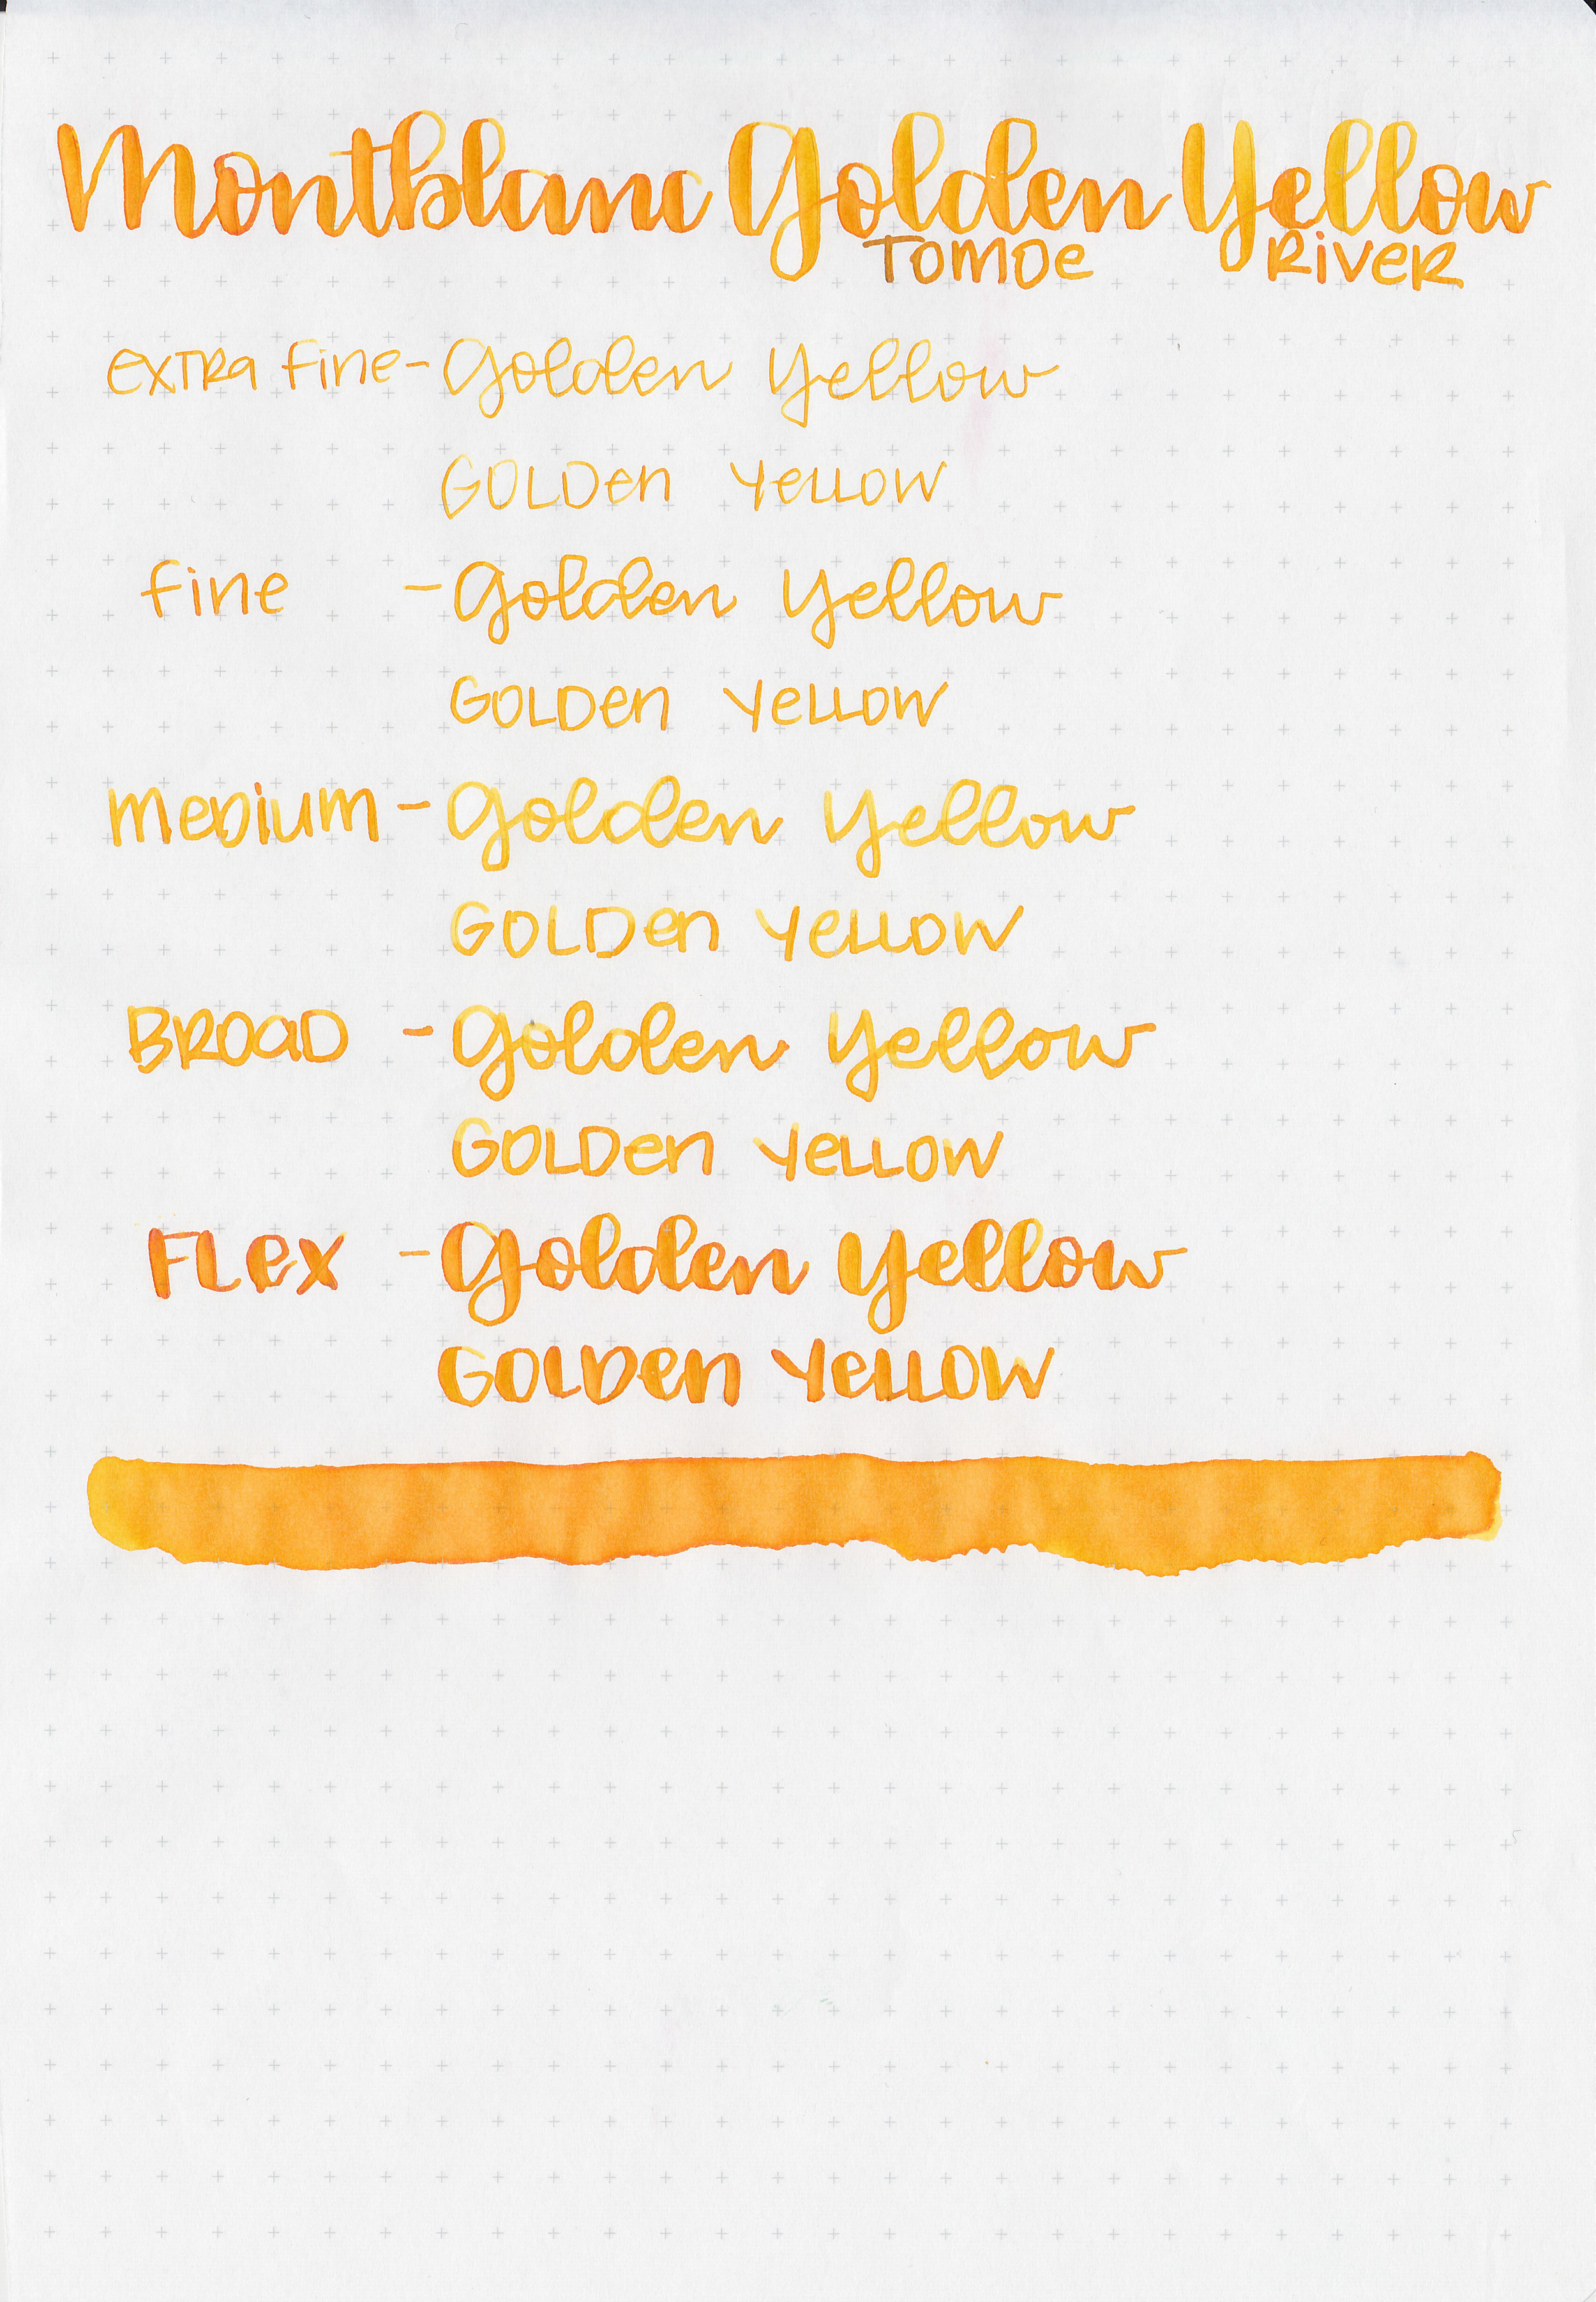 Montblanc Golden Yellow
Tomoe River
Extra Fine - Golden Yellow
Golden Yellow
Fine - Golden Yellow
Golden Yellow
Medium - Golden Yellow
Golden Yellow
Broad - Golden Yellow
Golden Yellow
Flex - Golden Yellow
Golden Yellow